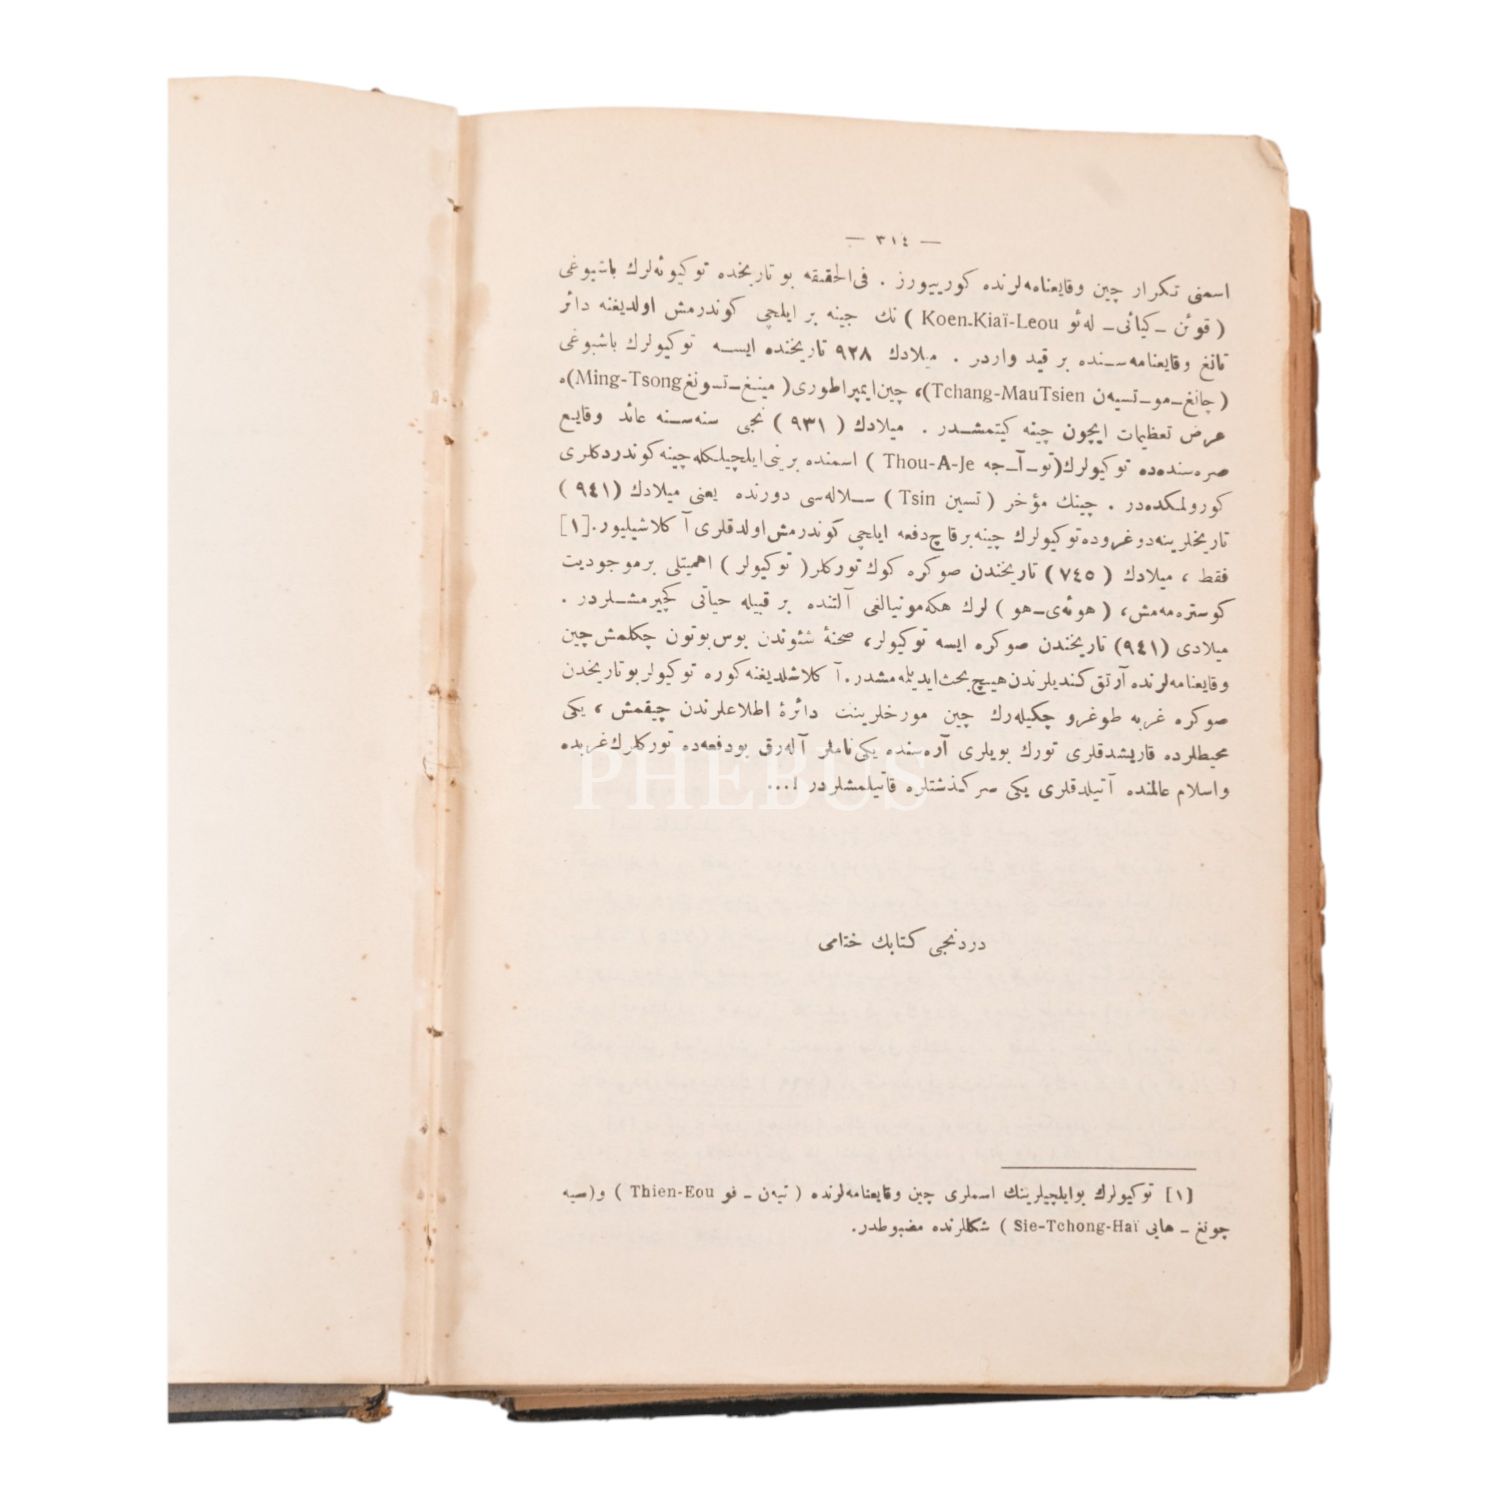 — ٣١٤ —
اسمنی تكرار چین وقایعنامه‌لرنده كورییورز . فی‌الحقیقه بو تاریخده توكیوئه‌لرك باشبوغی
( قوئن ـ كیائی ـ له‌ئو Koen-Kiaï-Leou ) نك چینه بر ایلچی كوندرمش اولدیغنه دائر
تانغ وقایعنامه‌سنده بر قید واردر . میلادك ٩٢٨ تاریخنده ایسه توكیولرك باشبوغی
( چانغ ـ مو ـ تسیه‌ن Tchang-MauTsien )، چین ایمپراطوری ( مینغ ـ تسونغ Ming-Tsong )ه
عرض تعظیمات ایچون چینه كیتمشدر . میلادك ( ٩٣١ ) نجی سنه‌سنه عائد وقایع
صره‌سنده‌ده توكیولرك ( تو ـ آ ـ جه Thou-A-Je ) اسمنده برینی ایلچیلكله چینه كوندردكلری
كورولمكده‌در . چینك مؤخر ( تسین Tsin ) سلاله‌سی دورنده یعنی میلادك ( ٩٤١ )
تاریخلرینه دوغروده توكیولرك چینه برقاچ دفعه ایلچی كوندرمش اولدقلری آ كلاشیلیور. [١]
فقط ، میلادك ( ٧٤٥ ) تاریخندن صوكره كوك توركلر ( توكیولر ) اهمیتلی برموجودیت
كوستره‌مه‌مش، ( هوئه‌ی ـ هو ) لرك هكه‌مونیالغی آلتنده بر قبیله حیاتی كچیرمشلردر .
میلادی (٩٤١) تاریخندن صوكره ایسه توكیولر، صحنهٔ شئوندن بوس‌بوتون چكلمش چین
وقایعنامه‌لرنده آرتق كندیلرندن هیچ بحث ایدیله‌مشدر. آ كلاشلدیغنه كوره توكیولر بو تاریخدن
صوكره غربه طوغرو چكیله‌رك چین مورخلرینك دائرهٔ اطلاعلرندن چیقمش ، یكی
محیطلرده قاریشدقلری تورك بویلری آره‌سنده یكی نامار آله‌رق بودفعه‌ده توركلرك غربده
واسلام عالمنده آتیلدقلری یكی سركذشتلره قاتیلمشلردر !...
PHEBUS
دردنجی كتابك ختامی
[١] توكیولرك بوایلچیلرینك اسملری چین وقایعنامه‌لرنده ( تیه‌ن ـ فو Thien-Eou ) و ( سیه
چونغ ـ هایی Sie-Tchong-Haï ) شكللرنده مضبوطدر.